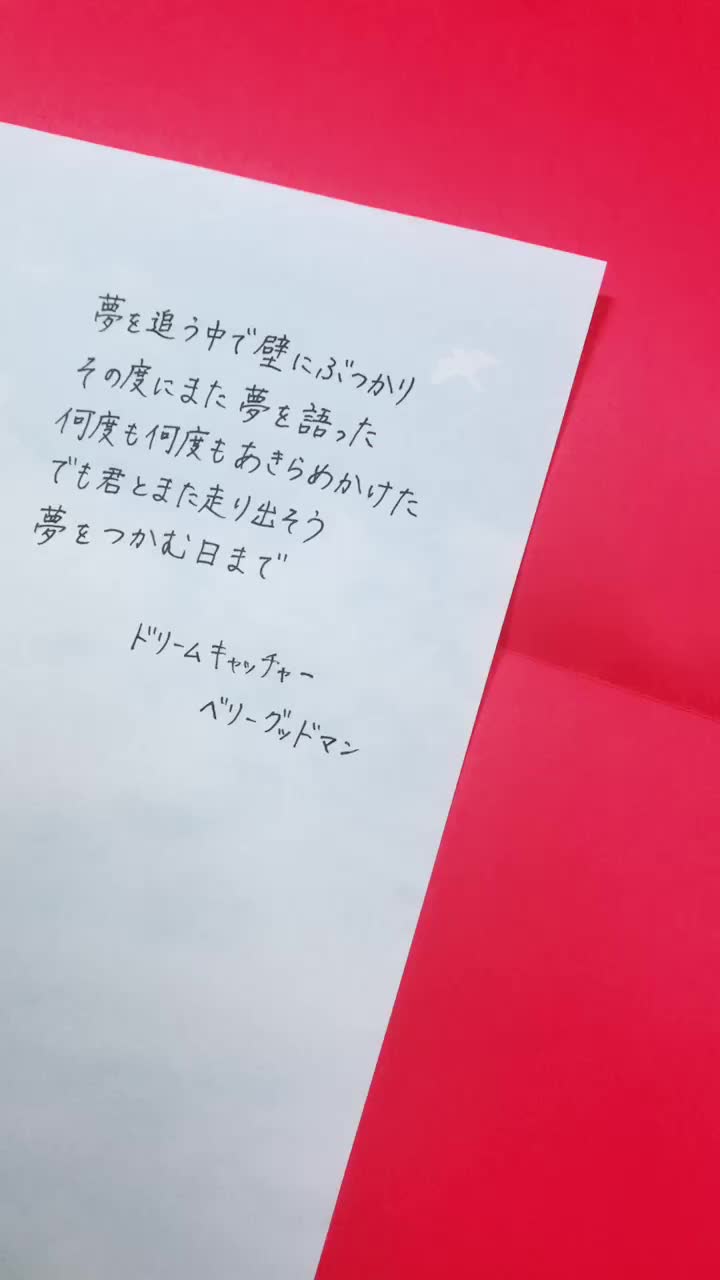 夢を追う中で壁にぶつかり
その度にまた夢を語った
何度も何度もあきらめかけた
でも君とまた走り出そう
夢をつかむ日まで
ドリームキャッチャー
ベリーグッドマン